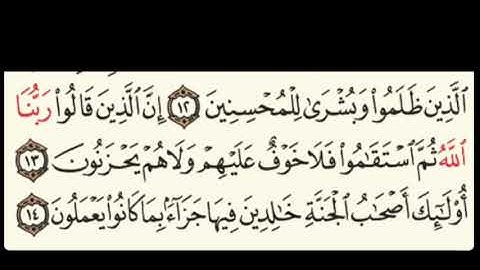 الَّذِينَ ظَلَمُوا۟ وَبُشْرَىٰ لِلْمُحْسِنِينَ ١٢ إِنَّ الَّذِينَ قَالُوا۟ رَبُّنَا
اللَّهُ ثُمَّ اسْتَقَٰمُوا۟ فَلَا خَوْفٌ عَلَيْهِمْ وَلَا هُمْ يَحْزَنُونَ ١٣
أُو۟لَٰٓئِكَ أَصْحَٰبُ الْجَنَّةِ خَٰلِدِينَ فِيهَا جَزَآءًۢ بِمَا كَانُوا۟ يَعْمَلُونَ ١٤